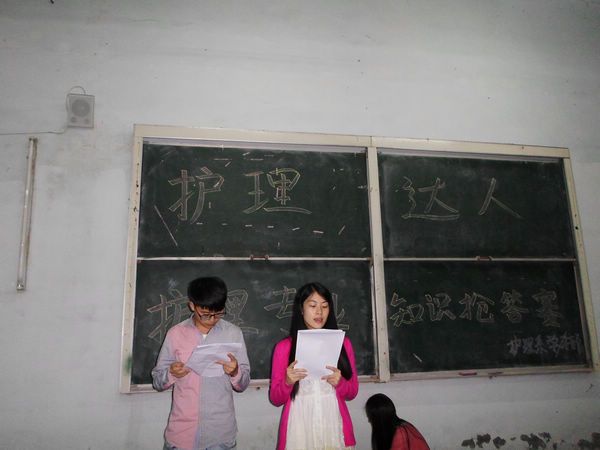 护理 达人
护理专业 知识抢答赛
护理系